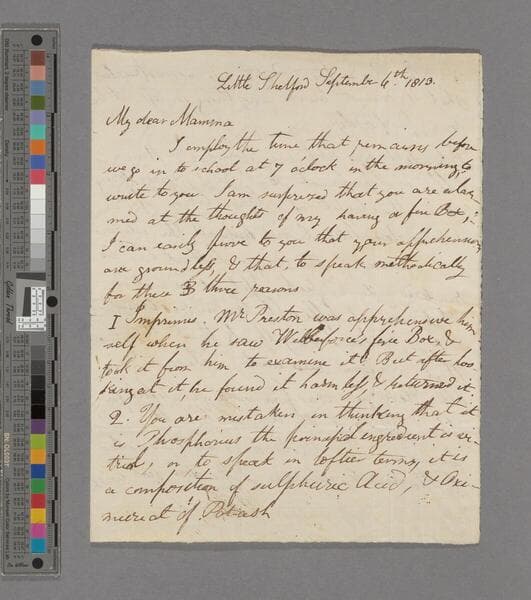 Little Shelford September 6th 1813.
My dear Mamma
I employ the time that remains before
we go in to school at 7 o'clock in the morning to
write to you. I am surprized that you are alar-
med at the thoughts of my having a fire Box;
I can easily prove to you that your apprehensions
are groundless, & that, to speak methodically
for these 3 three reasons
I Imprimis. Mr Preston was apprehensive him
self when he saw Wilberforce's fire Box, &
took it from him to examine it. But after loo
king at it he found it harmless & returned it
2. You are mistaken in thinking that it
is Phosphorus the principal ingredient is vi-
triol; or, to speak in loftier terms, it is
a composition of sulphuric Acid, & Oxi-
muriat of Potash